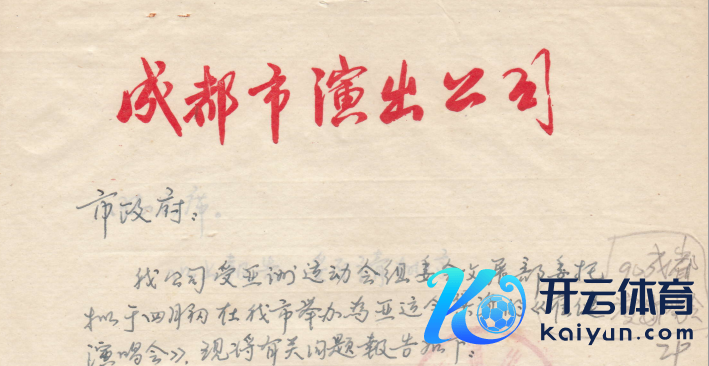 成都市演出公司
市政府：
我公司受亚洲运动会组委会文展部委托
拟于四月初在我市举办为亚运会
演唱会》，现将有关问题报告如下：
90成都
开云体育
kaiyun.com